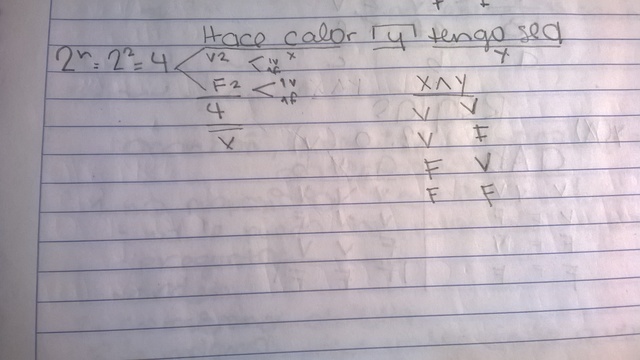 Hace calor y tengo sed
2ⁿ = 2² = 4 V2 1V x y
1F
F2 1V X∧Y
1F
4 V V
x V F
F V
F F